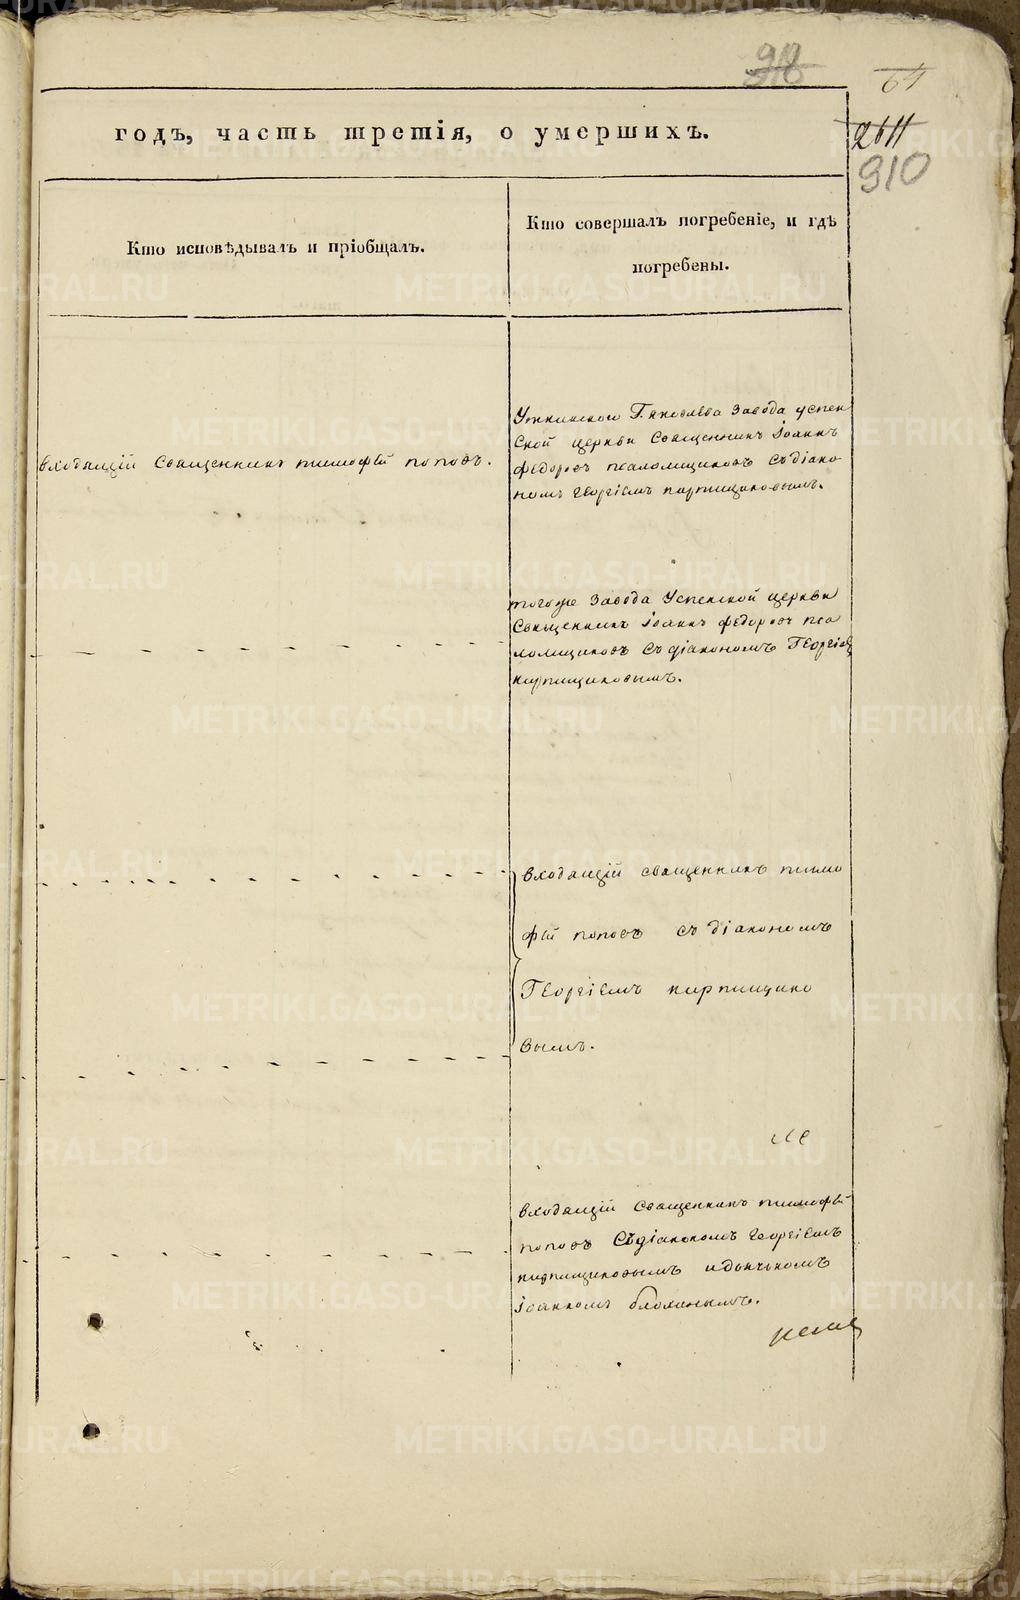 64
годъ, часть третія, о умершихъ.
2611
910
Кто исповѣдывалъ и пріобщалъ.
Кто совершалъ погребеніе, и гдѣ
погребены.
Уткинскаго Г. Яковлева Завода успен
ской церкви Священникъ Іоаннъ
федоровъ псаломщиковъ съ діако
номъ Георгіемъ кирпищиковымъ.
входящій Священникъ тимофѣй поповъ.
тогоже Завода Успенской церкви
Священникъ Іоаннъ федоровъ пса
ломщиковъ съ діакономъ Георгіем
кирпищиковымъ.
входящій священникъ тимо
фѣй поповъ съ діакономъ
Георгіемъ кирпищико
вымъ.
входящій Священникъ тимофѣй
поповъ Съ діакономъ Георгіемъ
кирпищиковымъ и дьячкомъ
Іоанномъ
METRIKI.GASO-URAL.RU